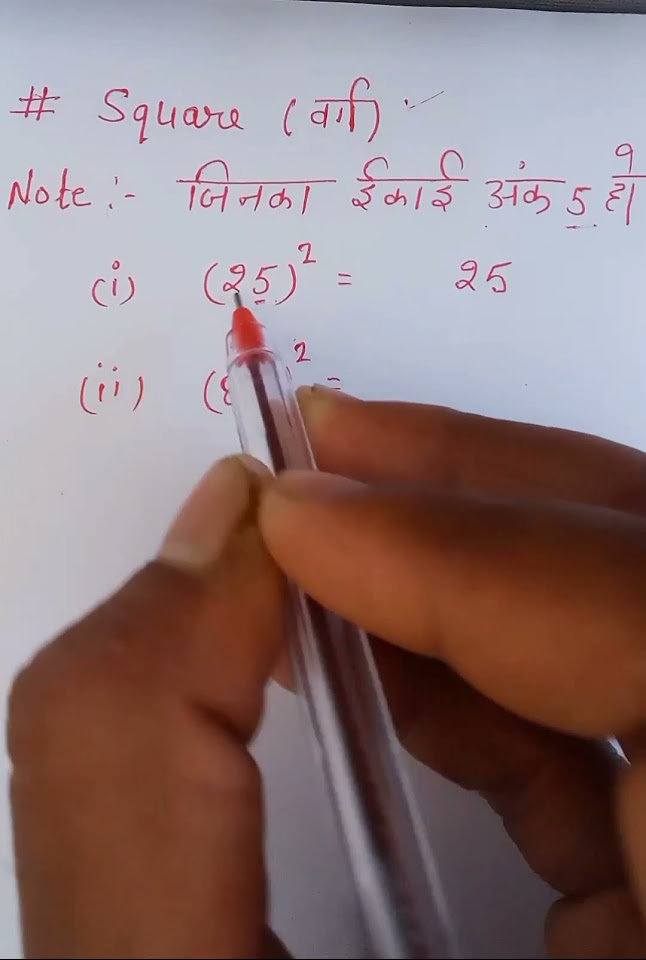 # Square (वर्ग) :-
Note :- जिनका ईकाई अंक 5 हो
(i) (25)² = 25
(ii) ( ² =